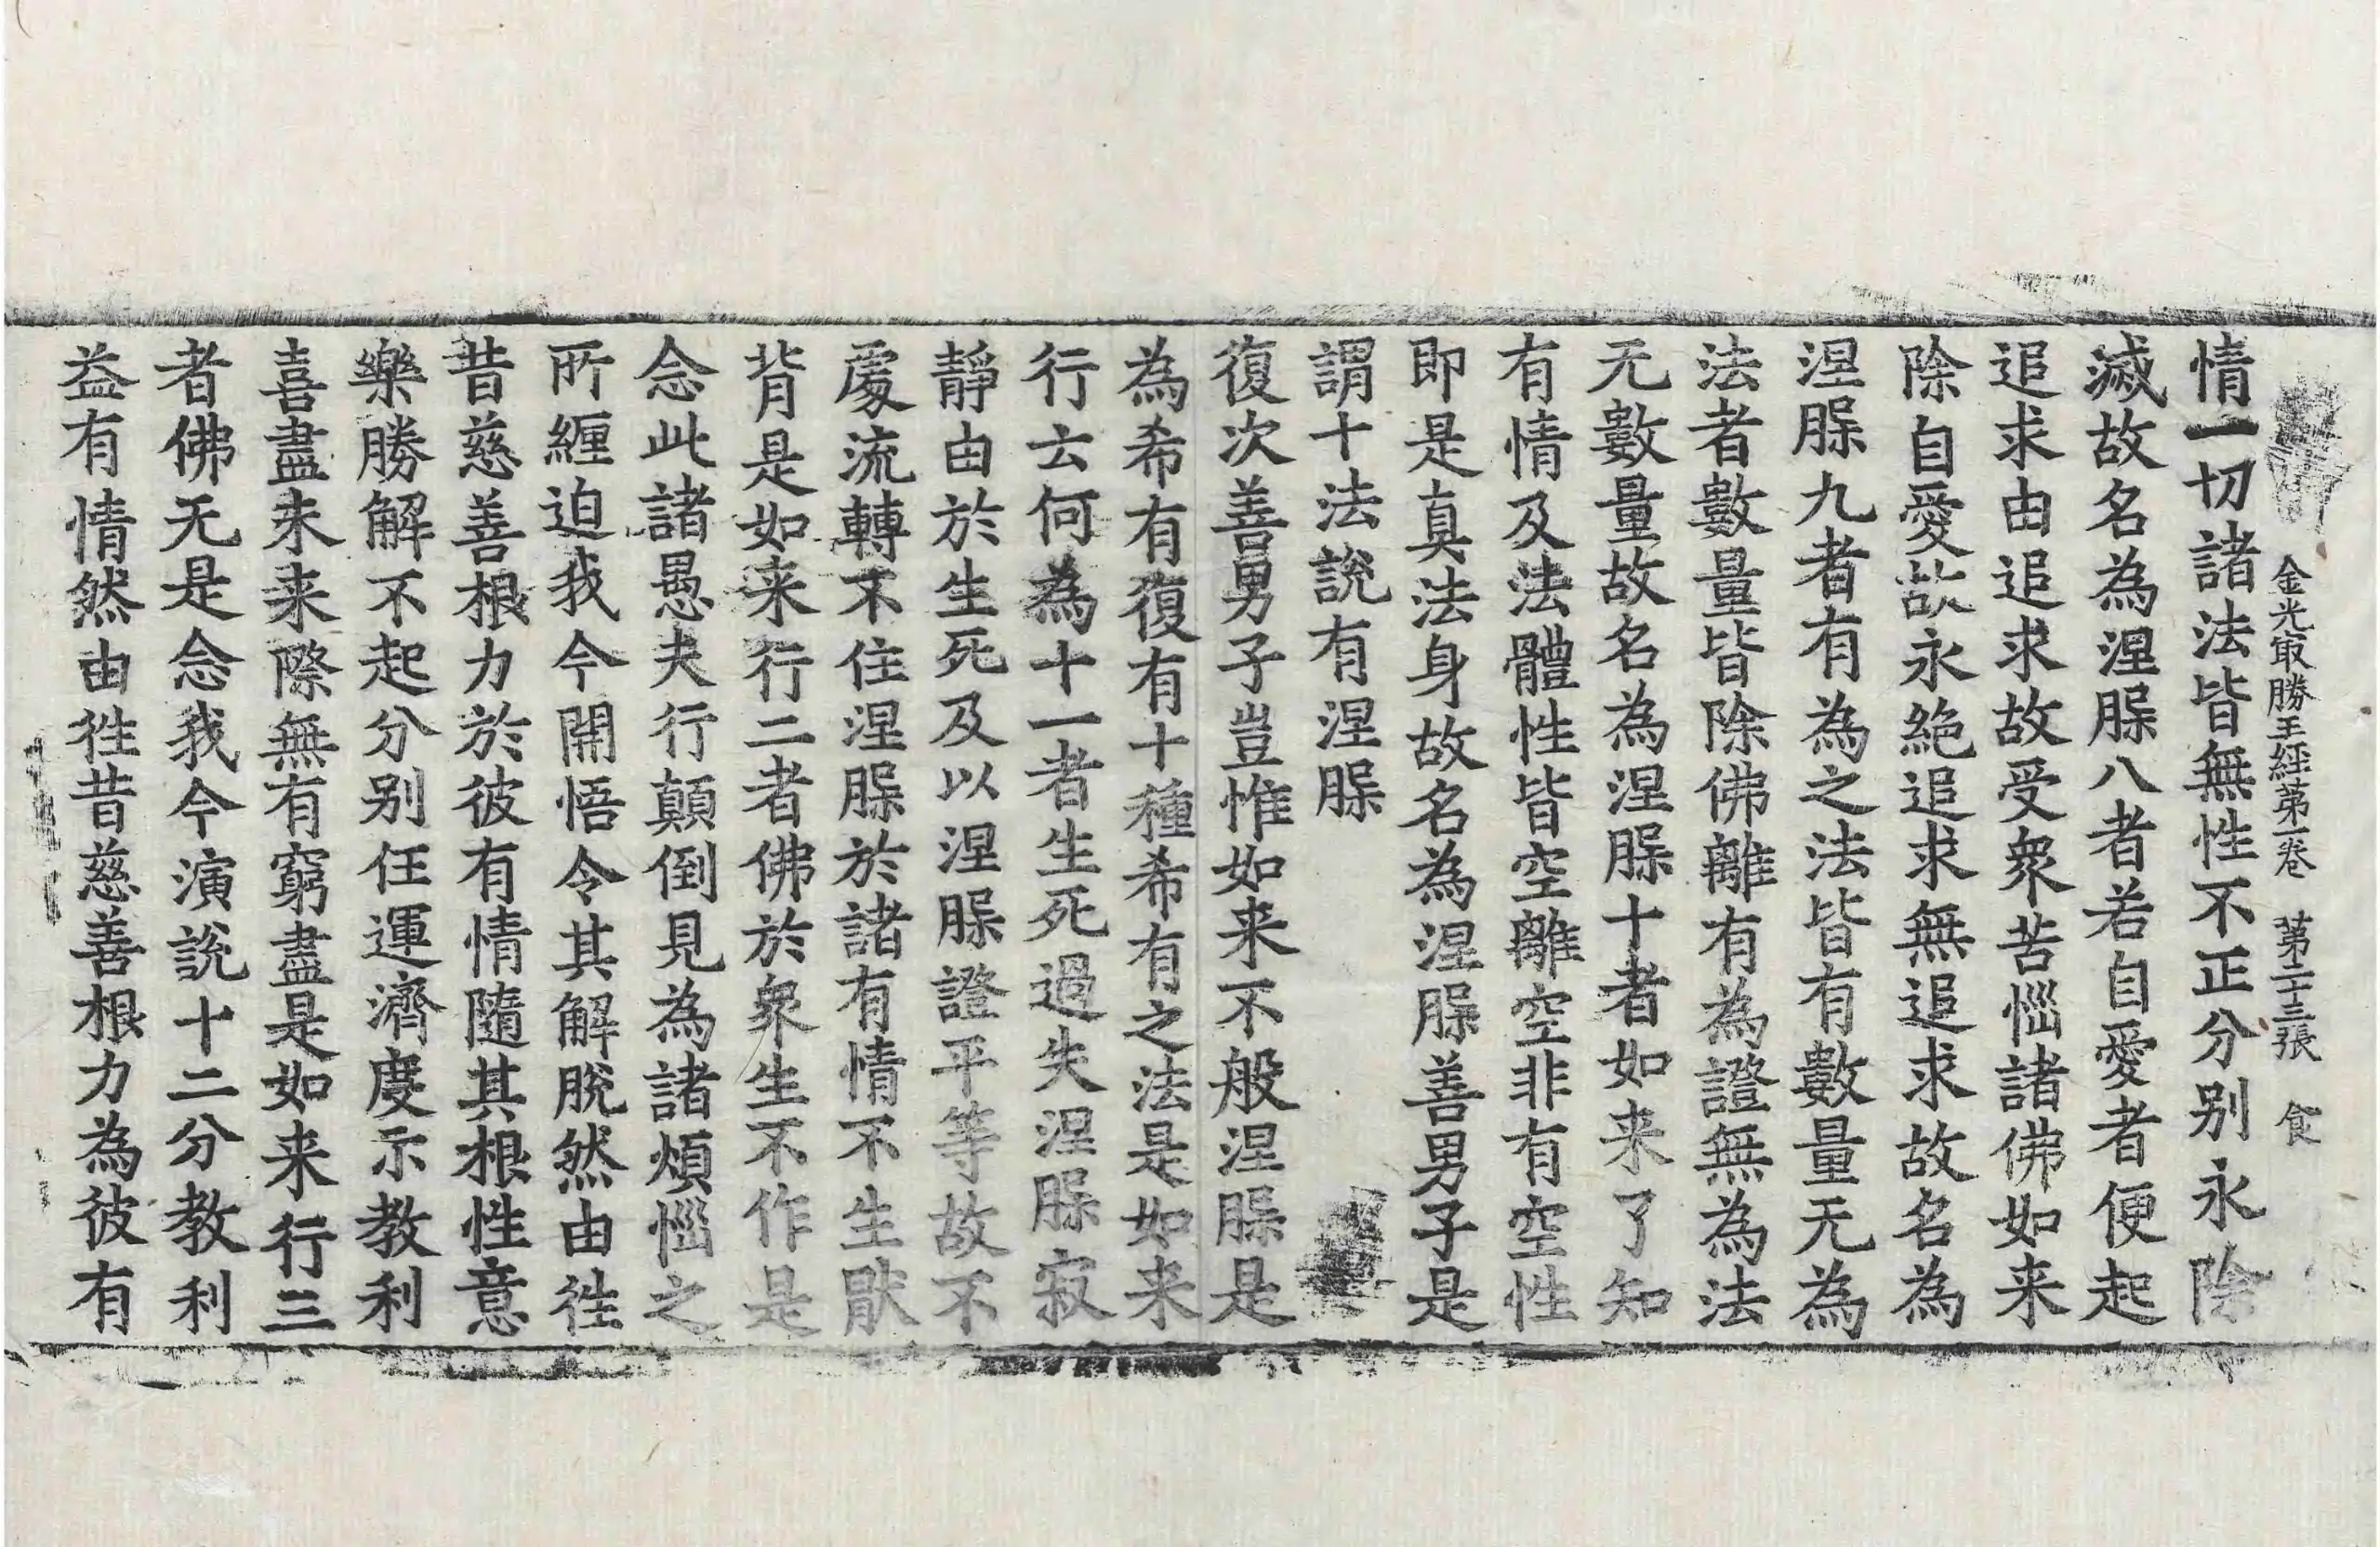 金光㝡勝王經第一卷 第二十三張 食
情一切諸法皆無性不正分别永除
滅故名為涅脲八者若自愛者便起
追求由追求故受衆苦惱諸佛如来
除自愛故永絶追求無追求故名為
涅脲九者有為之法皆有數量无為
法者數量皆除佛離有為證無為法
无數量故名為涅脲十者如来了知
有情及法體性皆空離空非有空性
即是真法身故名為涅脲善男子是
謂十法說有涅脲
復次善男子豈惟如来不般涅脲是
為希有復有十種希有之法是如来
行云何為十一者生死過失涅脲寂
靜由於生死及以涅脲證平等故不
處流轉不住涅脲於諸有情不生猒
背是如来行二者佛於衆生不作是
念此諸愚夫行顛倒見為諸煩惱之
所纏迫我今開悟令其解脫然由徃
昔慈善根力於彼有情隨其根性意
樂勝解不起分别任運濟度示教利
喜盡未来際無有窮盡是如来行三
者佛无是念我今演說十二分教利
益有情然由徃昔慈善根力為彼有